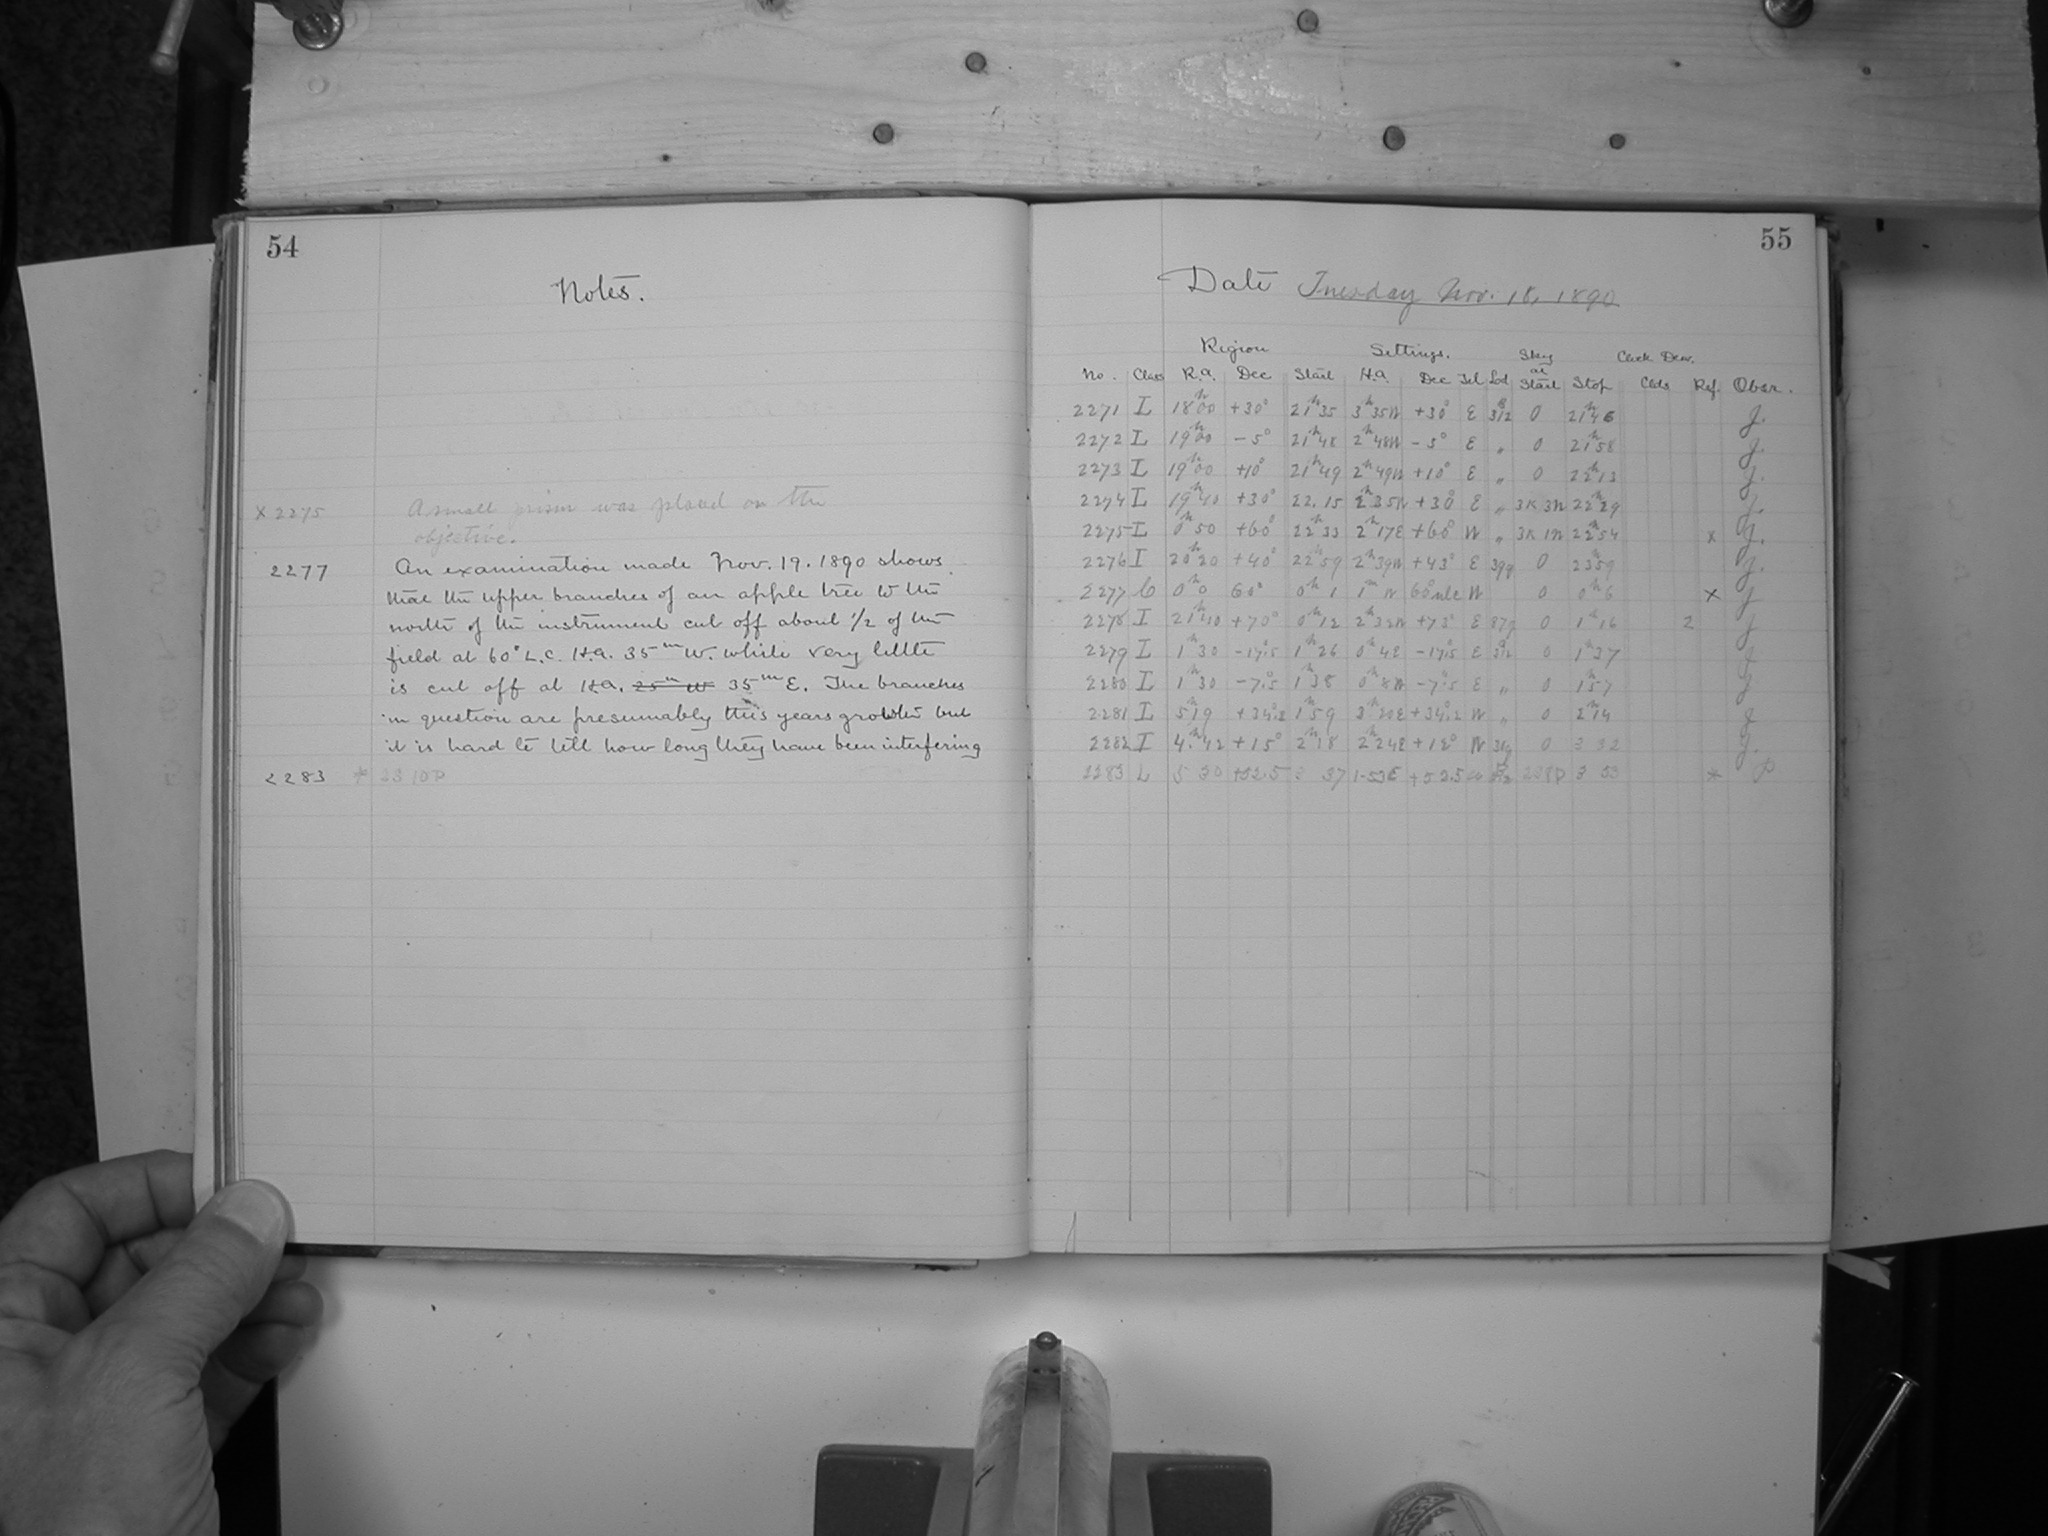 54
Notes.
x 2275 A small prism was placed on the
objective.
2277 An examination made Nov. 19. 1890 shows
that the upper branches of an apple tree to the
north of the instrument cut off about 1/2 of the
field at 60° L.C. H.A. 35m W. while very little
is cut off at H.A. 25m W 35m E. The branches
in question are presumably this years growth but
it is hard to tell how long they have been interfering
2283 * 2310P
55
Date Tuesday Nov. 18, 1890
Region Settings. Sky Clock Dew.
No. Class R.A. Dec Start H.A. Dec Tel at Start Stop Clds Ref. Obsr.
2271 I 18h00 +30° 21h35 3h35W +30° E 0 21h46 J.
2272 I 19h00 -5° 21h48 2h48W -5° E " 0 21h58 J.
2273 I 19h00 +10° 21h49 2h49W +10° E " 0 22h13 J.
2274 I 19h40 +30° 22.15 2h35W +30° E " 22h29 J.
2275 I 0h50 +60° 22h33 2h17E +60° W " 22h54 x J.
2276 I 20h20 +40° 22h59 2h39W +43° E 0 23h59 J.
2277 C 0h0 60° 0h1 1m W W 0 0h6 x J
2278 I 21h40 +70° 0h12 2h32W +73° E 0 1h16 2 J
2279 I 1h30 -17°.5 1h26 0h4E -17°.5 E 0 1h37 J
2280 I 1h30 -7°.5 1h38 0h8W -7°.5 E " 0 1h57 J
2281 I 5h19 +34°.2 1h59 3h20E +34°.2 W " 0 2h14 J
2282 I 4h42 +15° 2h18 2h24E +18° W 0 3 32 J.
2283 L 5 30 +52.5 3 37 1.53E +52.5 3 53 * P